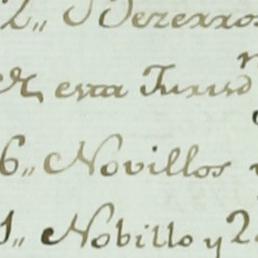 2,, Bezerros
esta Jurisd
6,, Novillos
1,, Nobillo y 2